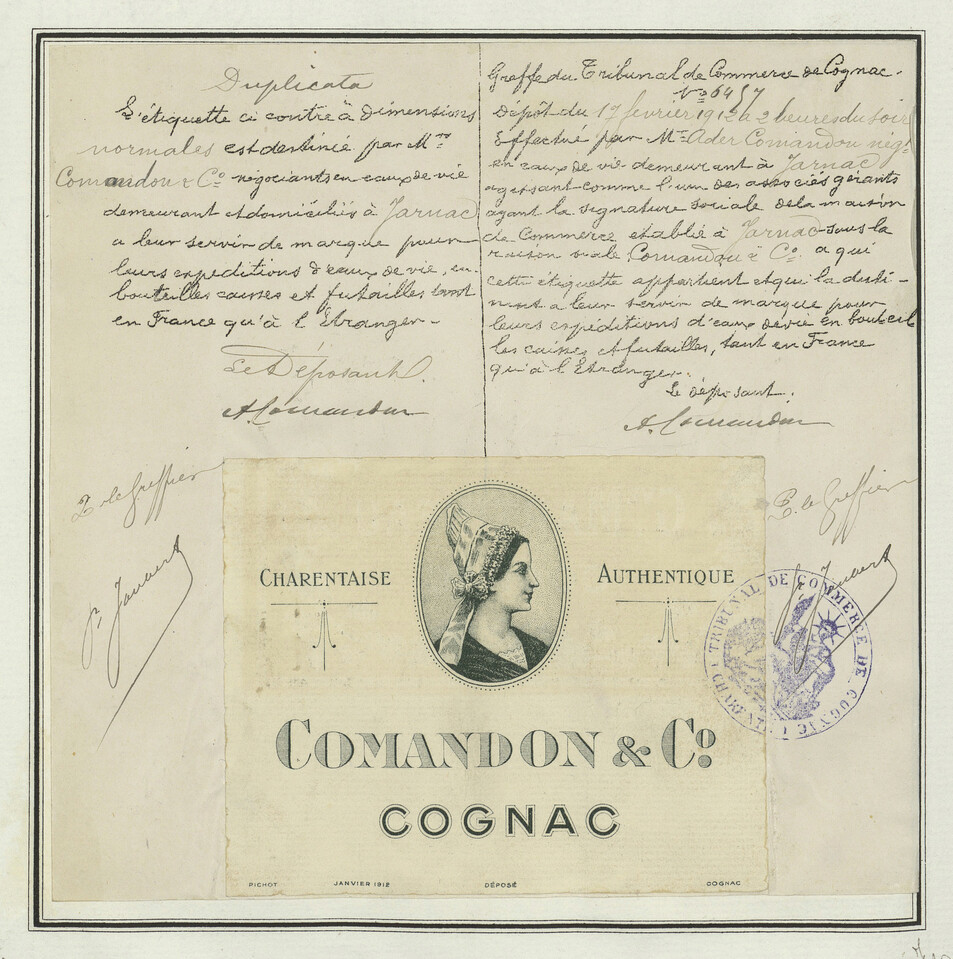 Duplicata
L'étiquette ci contre à dimensions
normales est destinée par Mrs
Comandon & Co négociants en eaux de vie
demeurant et domiciliés à Jarnac
a leur servir de marque pour
leurs expeditions d'eaux de vie, en
bouteilles caisses et futailles tant
en France qu'à l'Etranger -
Le Déposant
A. Comandon
P. le Greffier
Greffe du Tribunal de Commerce de Cognac.
No 6457
Dépôt du 17 février 1912 a 2 heures du soir
Effectué par Mr Ader Comandon négt
en eaux de vie demeurant à Jarnac
agissant comme l'un des associés gérants
ayant la signature sociale de la maison
de Commerce etablie à Jarnac sous la
raison sociale Comandon & Co. a qui
cette étiquette appartient et qui la desti-
nent a leur servir de marque pour
leurs expéditions d'eaux de vie en bouteil
les caisses et futailles, tant en France
qu'à l'Etranger.
Le déposant.
A. Comandon
P. le Greffier
CHARENTAISE
AUTHENTIQUE
TRIBUNAL DE COMMERCE DE COGNAC
(CHARENTE)
COMANDON & Co
COGNAC
PICHOT JANVIER 1912 DÉPOSÉ COGNAC